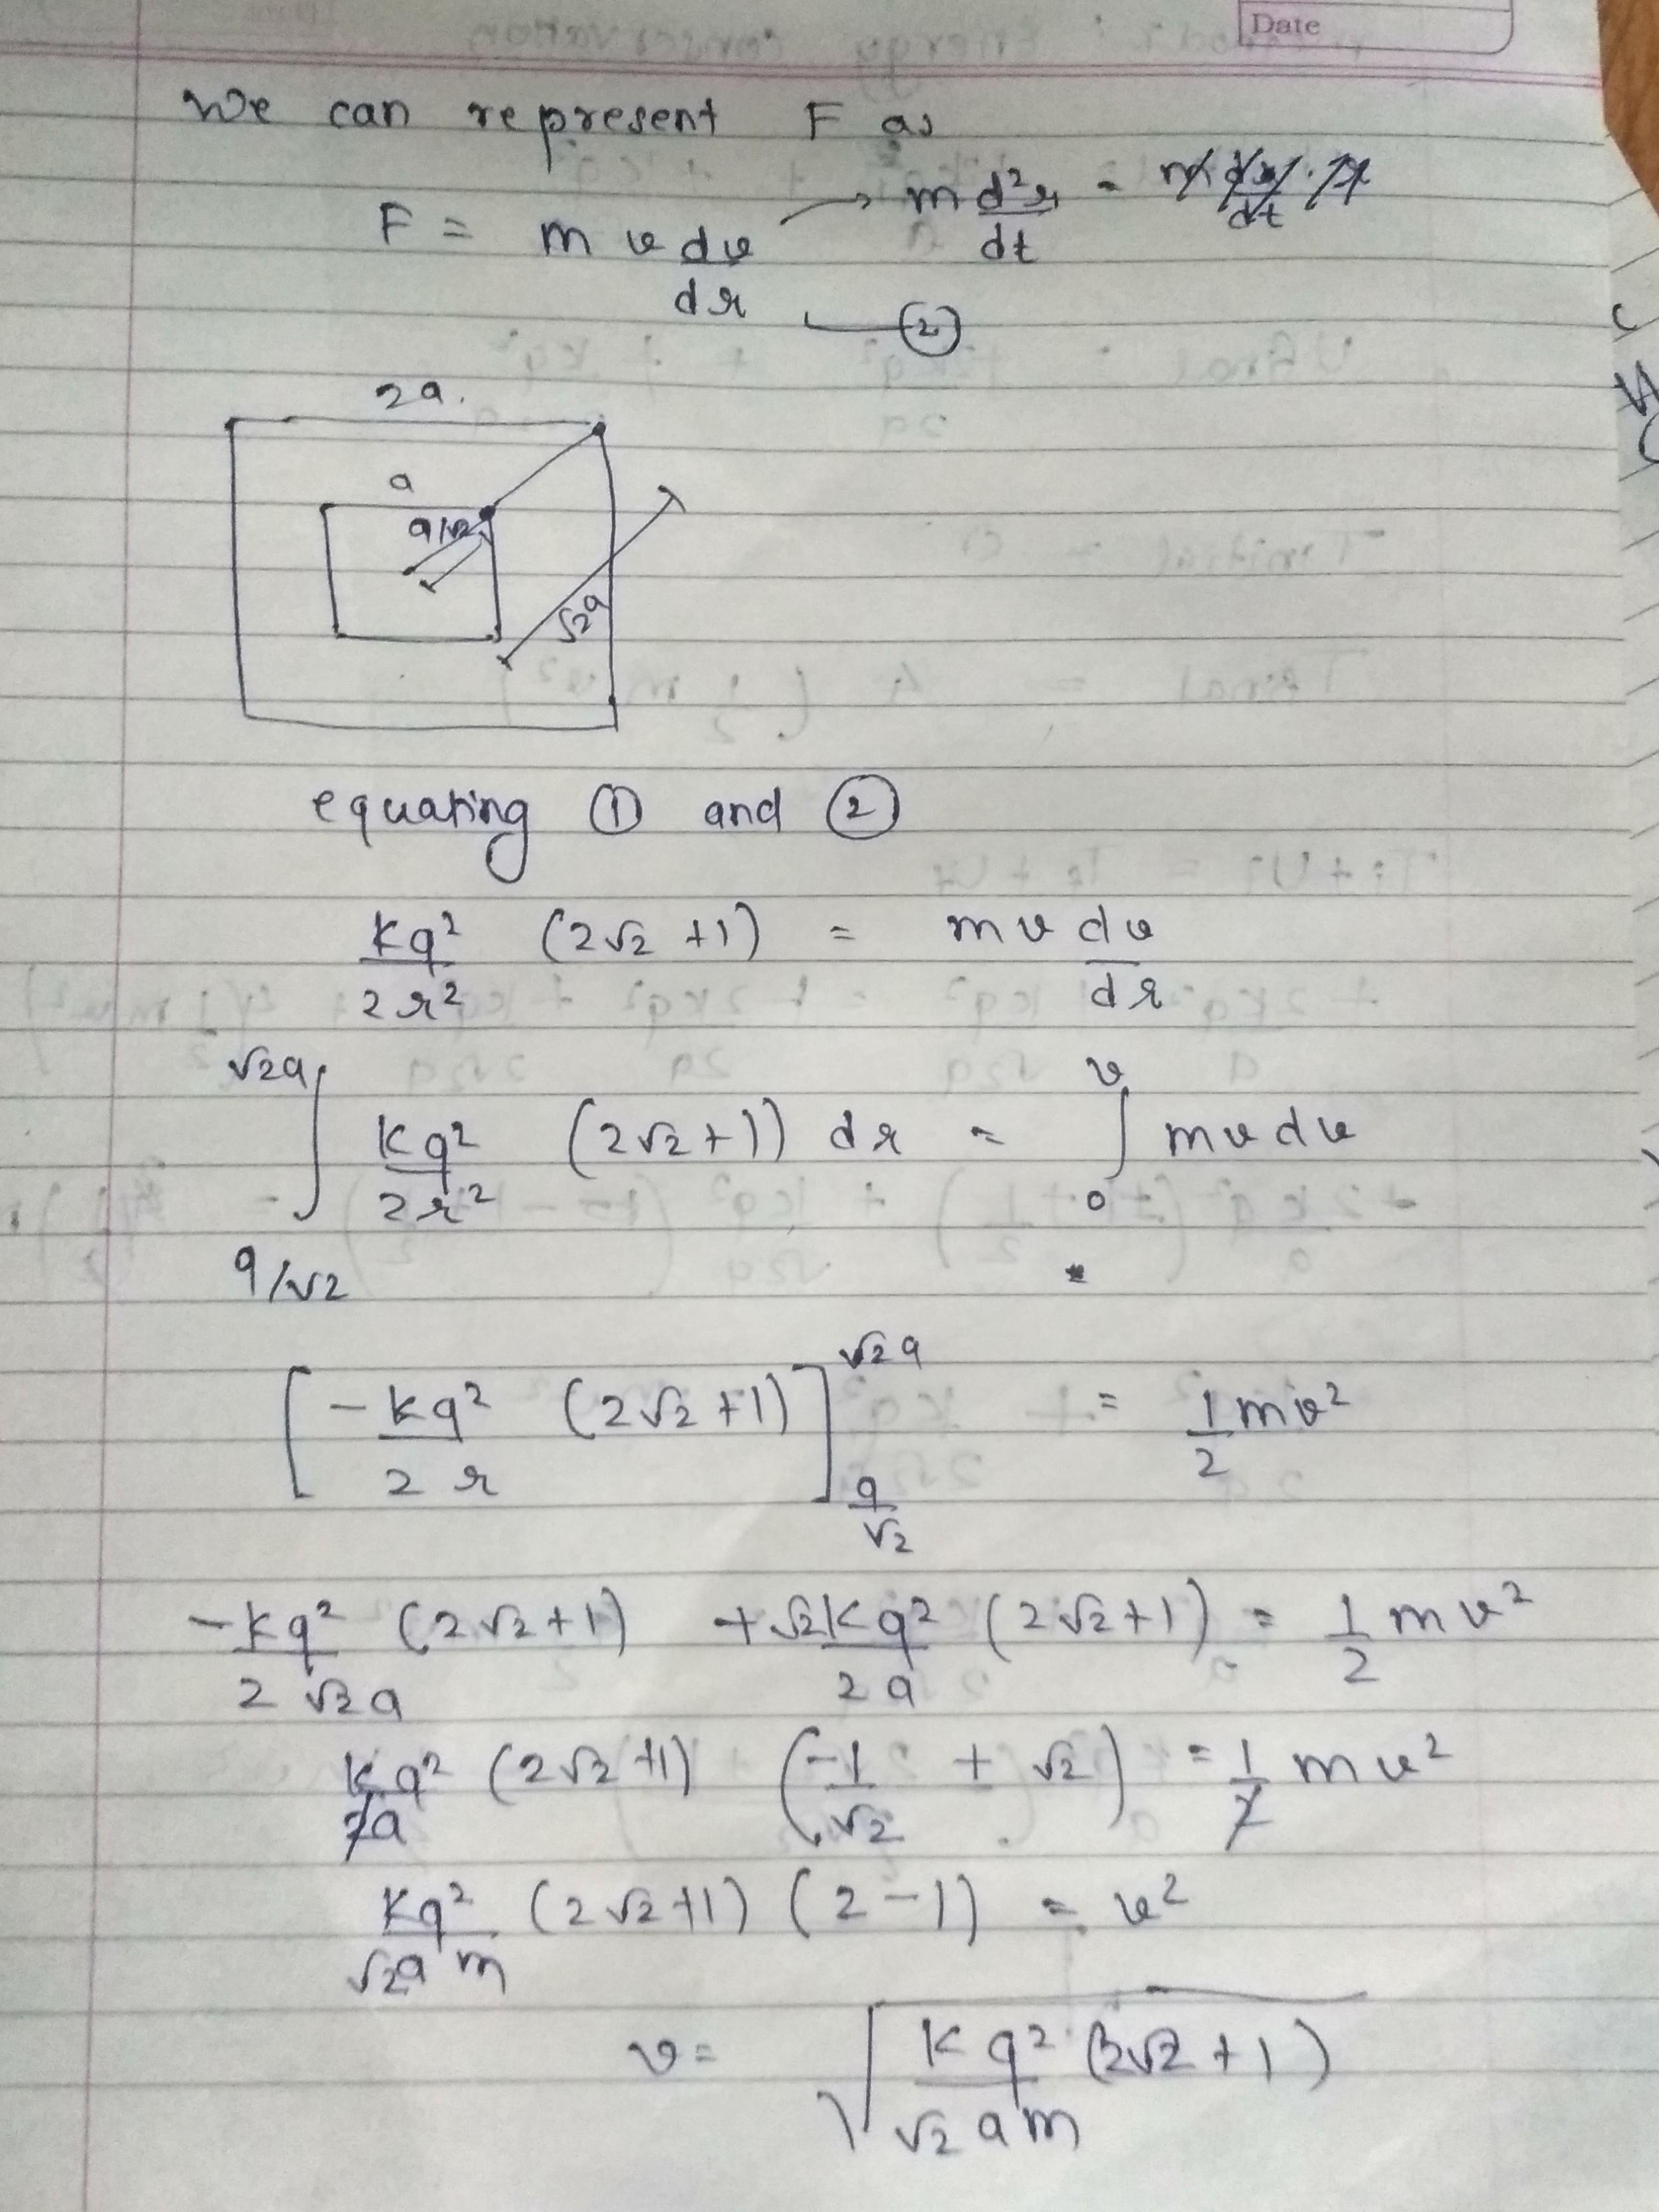 Date
We can represent F as
F = m v dv/dr → m d²r/dt =
②
2a.
a
a/√2
√2a
equating ① and ②
kq²/2r² (2√2 + 1) = m v dv/dr
∫_{a/√2}^{√2a} kq²/2r² (2√2 + 1)) dr = ∫_0^v m v dv
[ -kq²/2r (2√2 + 1) ]_{a/√2}^{√2a} = 1/2 mv²
-kq²/2√2a (2√2 + 1) + √2kq²/2a (2√2 + 1) = 1/2 mv²
kq²/2a (2√2 + 1) (-1/√2 + √2) = 1/2 mv²
kq²/√2am (2√2 + 1) (2 - 1) = v²
v = √(kq² (2√2 + 1)/√2am)